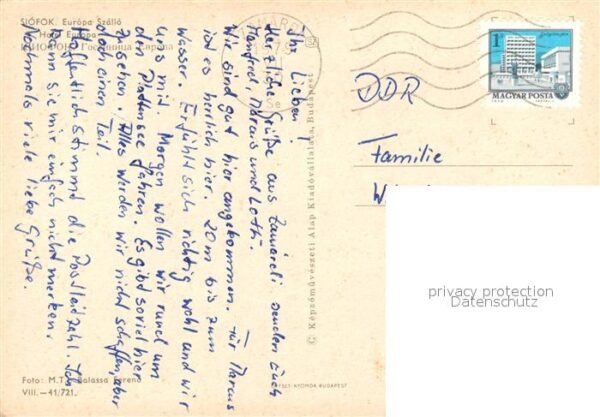 SIÓFOK. Európa Szálló
Hotel Europa
СИОФОК. Гостиница Европа
Ihr Lieben!
Herzliche Grüße aus Zamardi senden Euch
Manfred, Marcus und Loth.
Wir sind gut hier angekommen. Für Marcus
ist es herrlich hier. 20m bis zum
Wasser. Er fühlt sich richtig wohl und wir
uns mit. Morgen wollen wir rund um
die Plattensee fahren. Es gibt soviel hier
zu sehen. Alles werden wir nicht schaffen, aber
doch einen Teil.
Hoffentlich stimmt die Postleitzahl. Ich
kann sie mir einfach nicht merken.
Nochmals viele liebe Grüße.
Foto: M.T.I. Balassa Ferenc
VIII.-41/721.
© Képzőművészeti Alap Kiadóvállalata, Budapest
NYOMDA, BUDAPEST
1 Ft
MAGYAR POSTA
DDR
Familie
privacy protection
Datenschutz